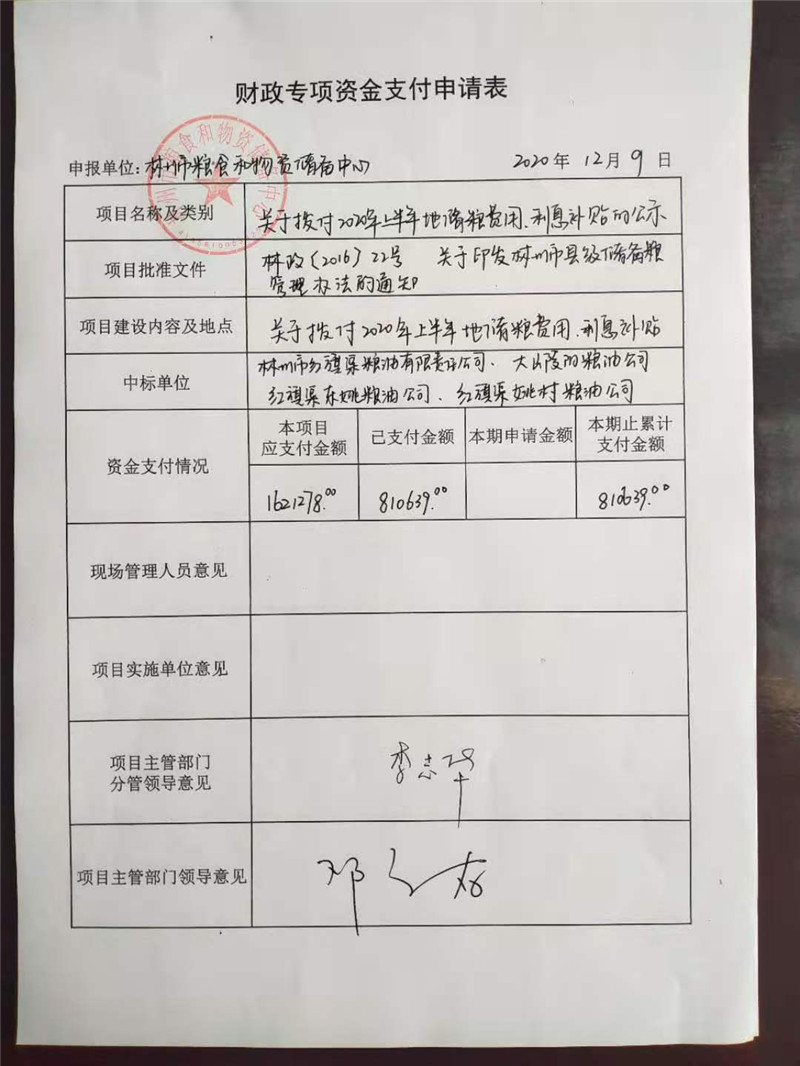 财政专项资金支付申请表
申报单位:林州市粮食和物资储备中心 2020年 12月 9日
项目名称及类别 关于拨付2020年上半年地储粮费用、利息补贴的公示
项目批准文件 林政〔2016〕22号 关于印发林州市县级储备粮
管理办法的通知
项目建设内容及地点 关于拨付2020年上半年地储粮费用、利息补贴
中标单位 林州市红旗渠粮油有限责任公司、大山陵阳粮油公司
红旗渠东姚粮油公司、红旗渠姚村粮油公司
资金支付情况
本项目
应支付金额 已支付金额 本期申请金额 本期止累计
支付金额
1621278.00 810639.00 810639.00
现场管理人员意见
项目实施单位意见
项目主管部门
分管领导意见
李志华
项目主管部门领导意见
邓